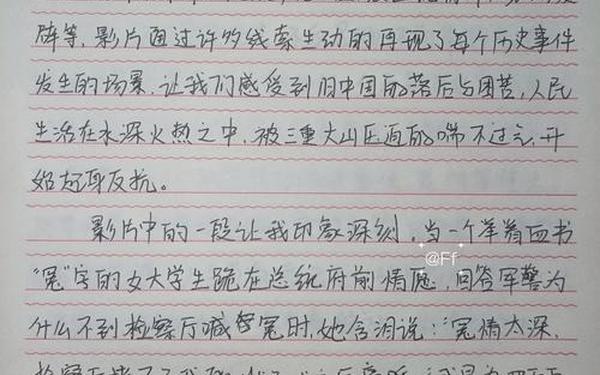 阵等,影片通过许多线索生动的再现了每个历史事件
发生的场景,让我们感受到旧中国的落后与困苦,人民
生活在水深火热之中,被三重大山压迫的喘不过气,开
始起身反抗。
影片中的一段让我印象深刻,当一个举着血书
“冤”字的女大学生跪在总统府前情愿,回答军警为
什么不到检察厅喊冤时,她含泪说:“冤情太深,
@Ff